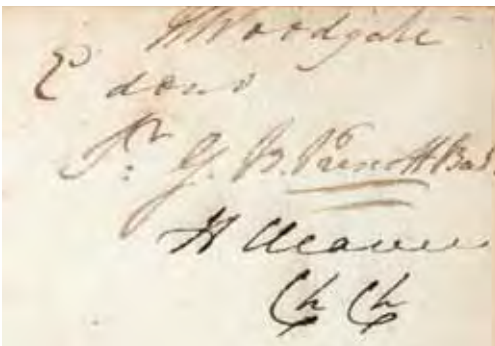 HWoodgate
E dono
Sr. G. B. Prescott Bart.
H Cleaver
Ch Ch